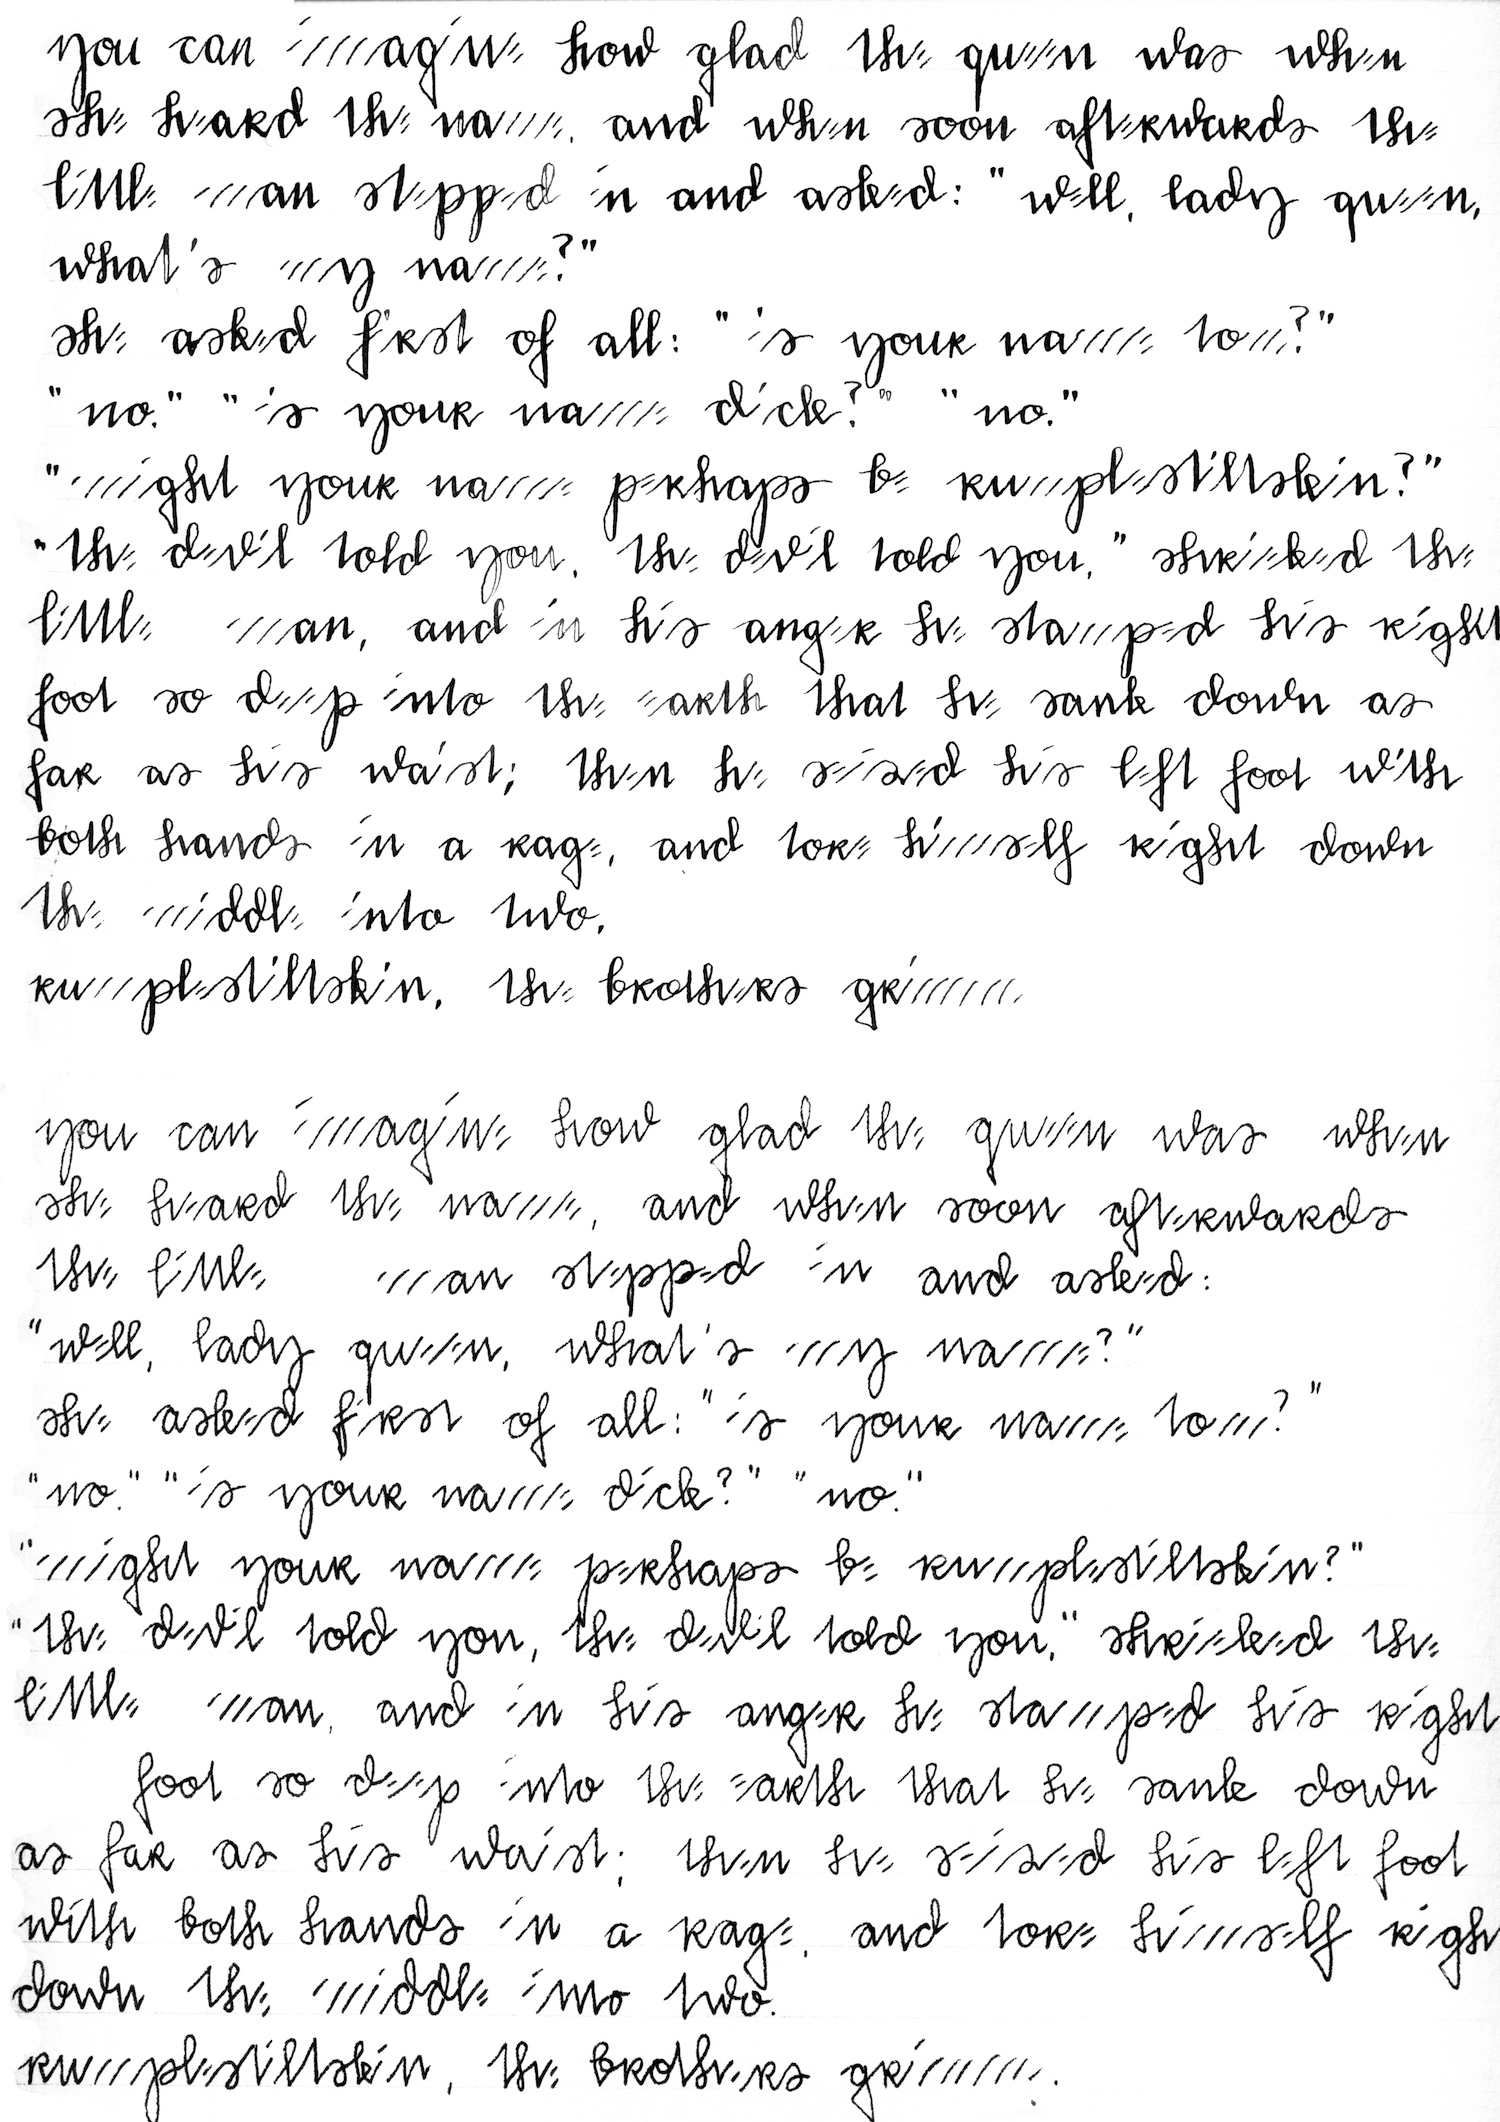 you can imagine how glad the queen was when
she heard the name, and when soon afterwards the
little man stepped in and asked: "well, lady queen,
what's my name?"
she asked first of all: "is your name tom?"
"no." "is your name dick?" "no."
"might your name perhaps be rumplestiltskin?"
"the devil told you, the devil told you," shrieked the
little man, and in his anger he stamped his right
foot so deep into the earth that he sank down as
far as his waist; then he seized his left foot with
both hands in a rage, and tore himself right down
the middle into two.
rumplestiltskin, the brothers grimm
you can imagine how glad the queen was when
she heard the name, and when soon afterwards
the little man stepped in and asked:
"well, lady queen, what's my name?"
she asked first of all: "is your name tom?"
"no." "is your name dick?" "no."
"might your name perhaps be rumplestiltskin?"
"the devil told you, the devil told you," shrieked the
little man, and in his anger he stamped his right
foot so deep into the earth that he sank down
as far as his waist; then he seized his left foot
with both hands in a rage, and tore himself righ
down the middle into two.
rumplestiltskin, the brothers grimm.